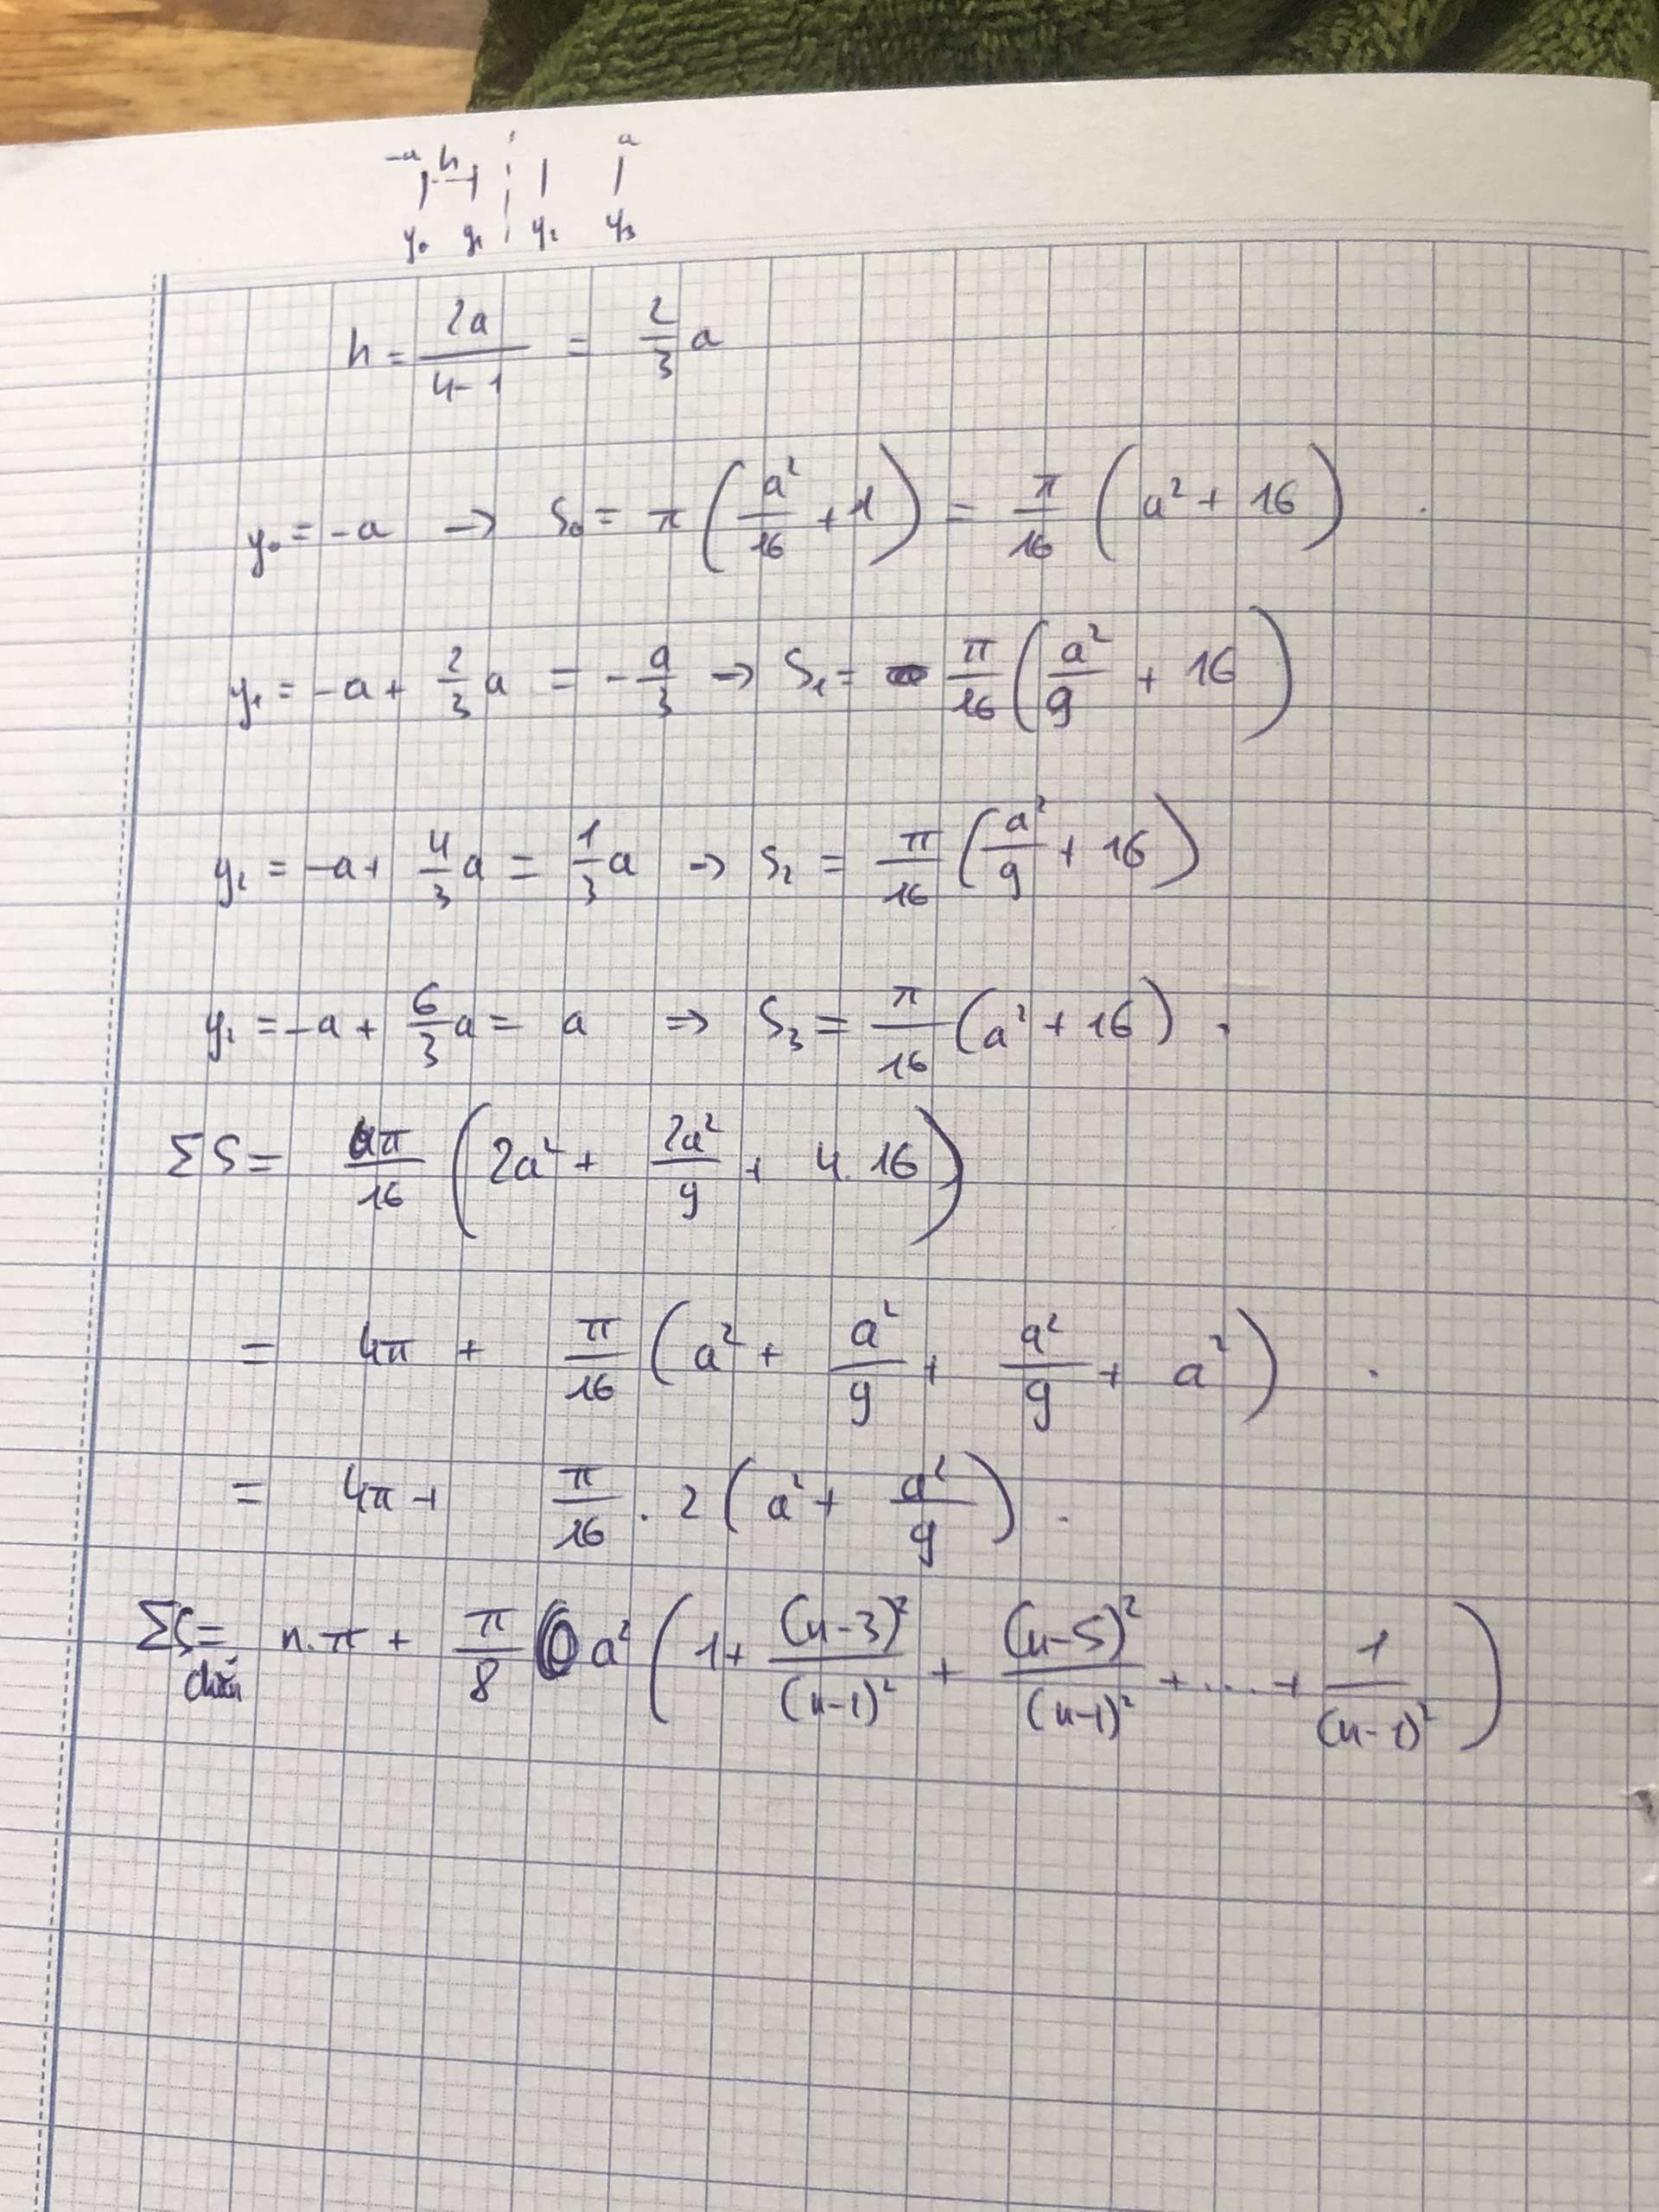 -a h a
y₀ y₁ y₂ y₃
h = 2a/(4-1) = 2/3 a
y₀ = -a → S₀ = π (a²/16 + 1) = π/16 (a² + 16) .
y₁ = -a + 2/3 a = - a/3 → S₁ = π/16 (a²/9 + 16)
y₂ = -a + 4/3 a = 1/3 a → S₂ = π/16 (a²/9 + 16)
y₂ = -a + 6/3 a = a ⇒ S₃ = π/16 (a² + 16) .
ΣS = π/16 (2a² + 2a²/9 + 4.16)
= 4π + π/16 (a² + a²/9 + a²/9 + a²) .
= 4π + π/16 . 2 (a² + a²/9) .
ΣS = n.π + π/8 a² (1 + (n-3)²/(n-1)² + (n-5)²/(n-1)² + .... + 1/(n-1)²)
chẵn